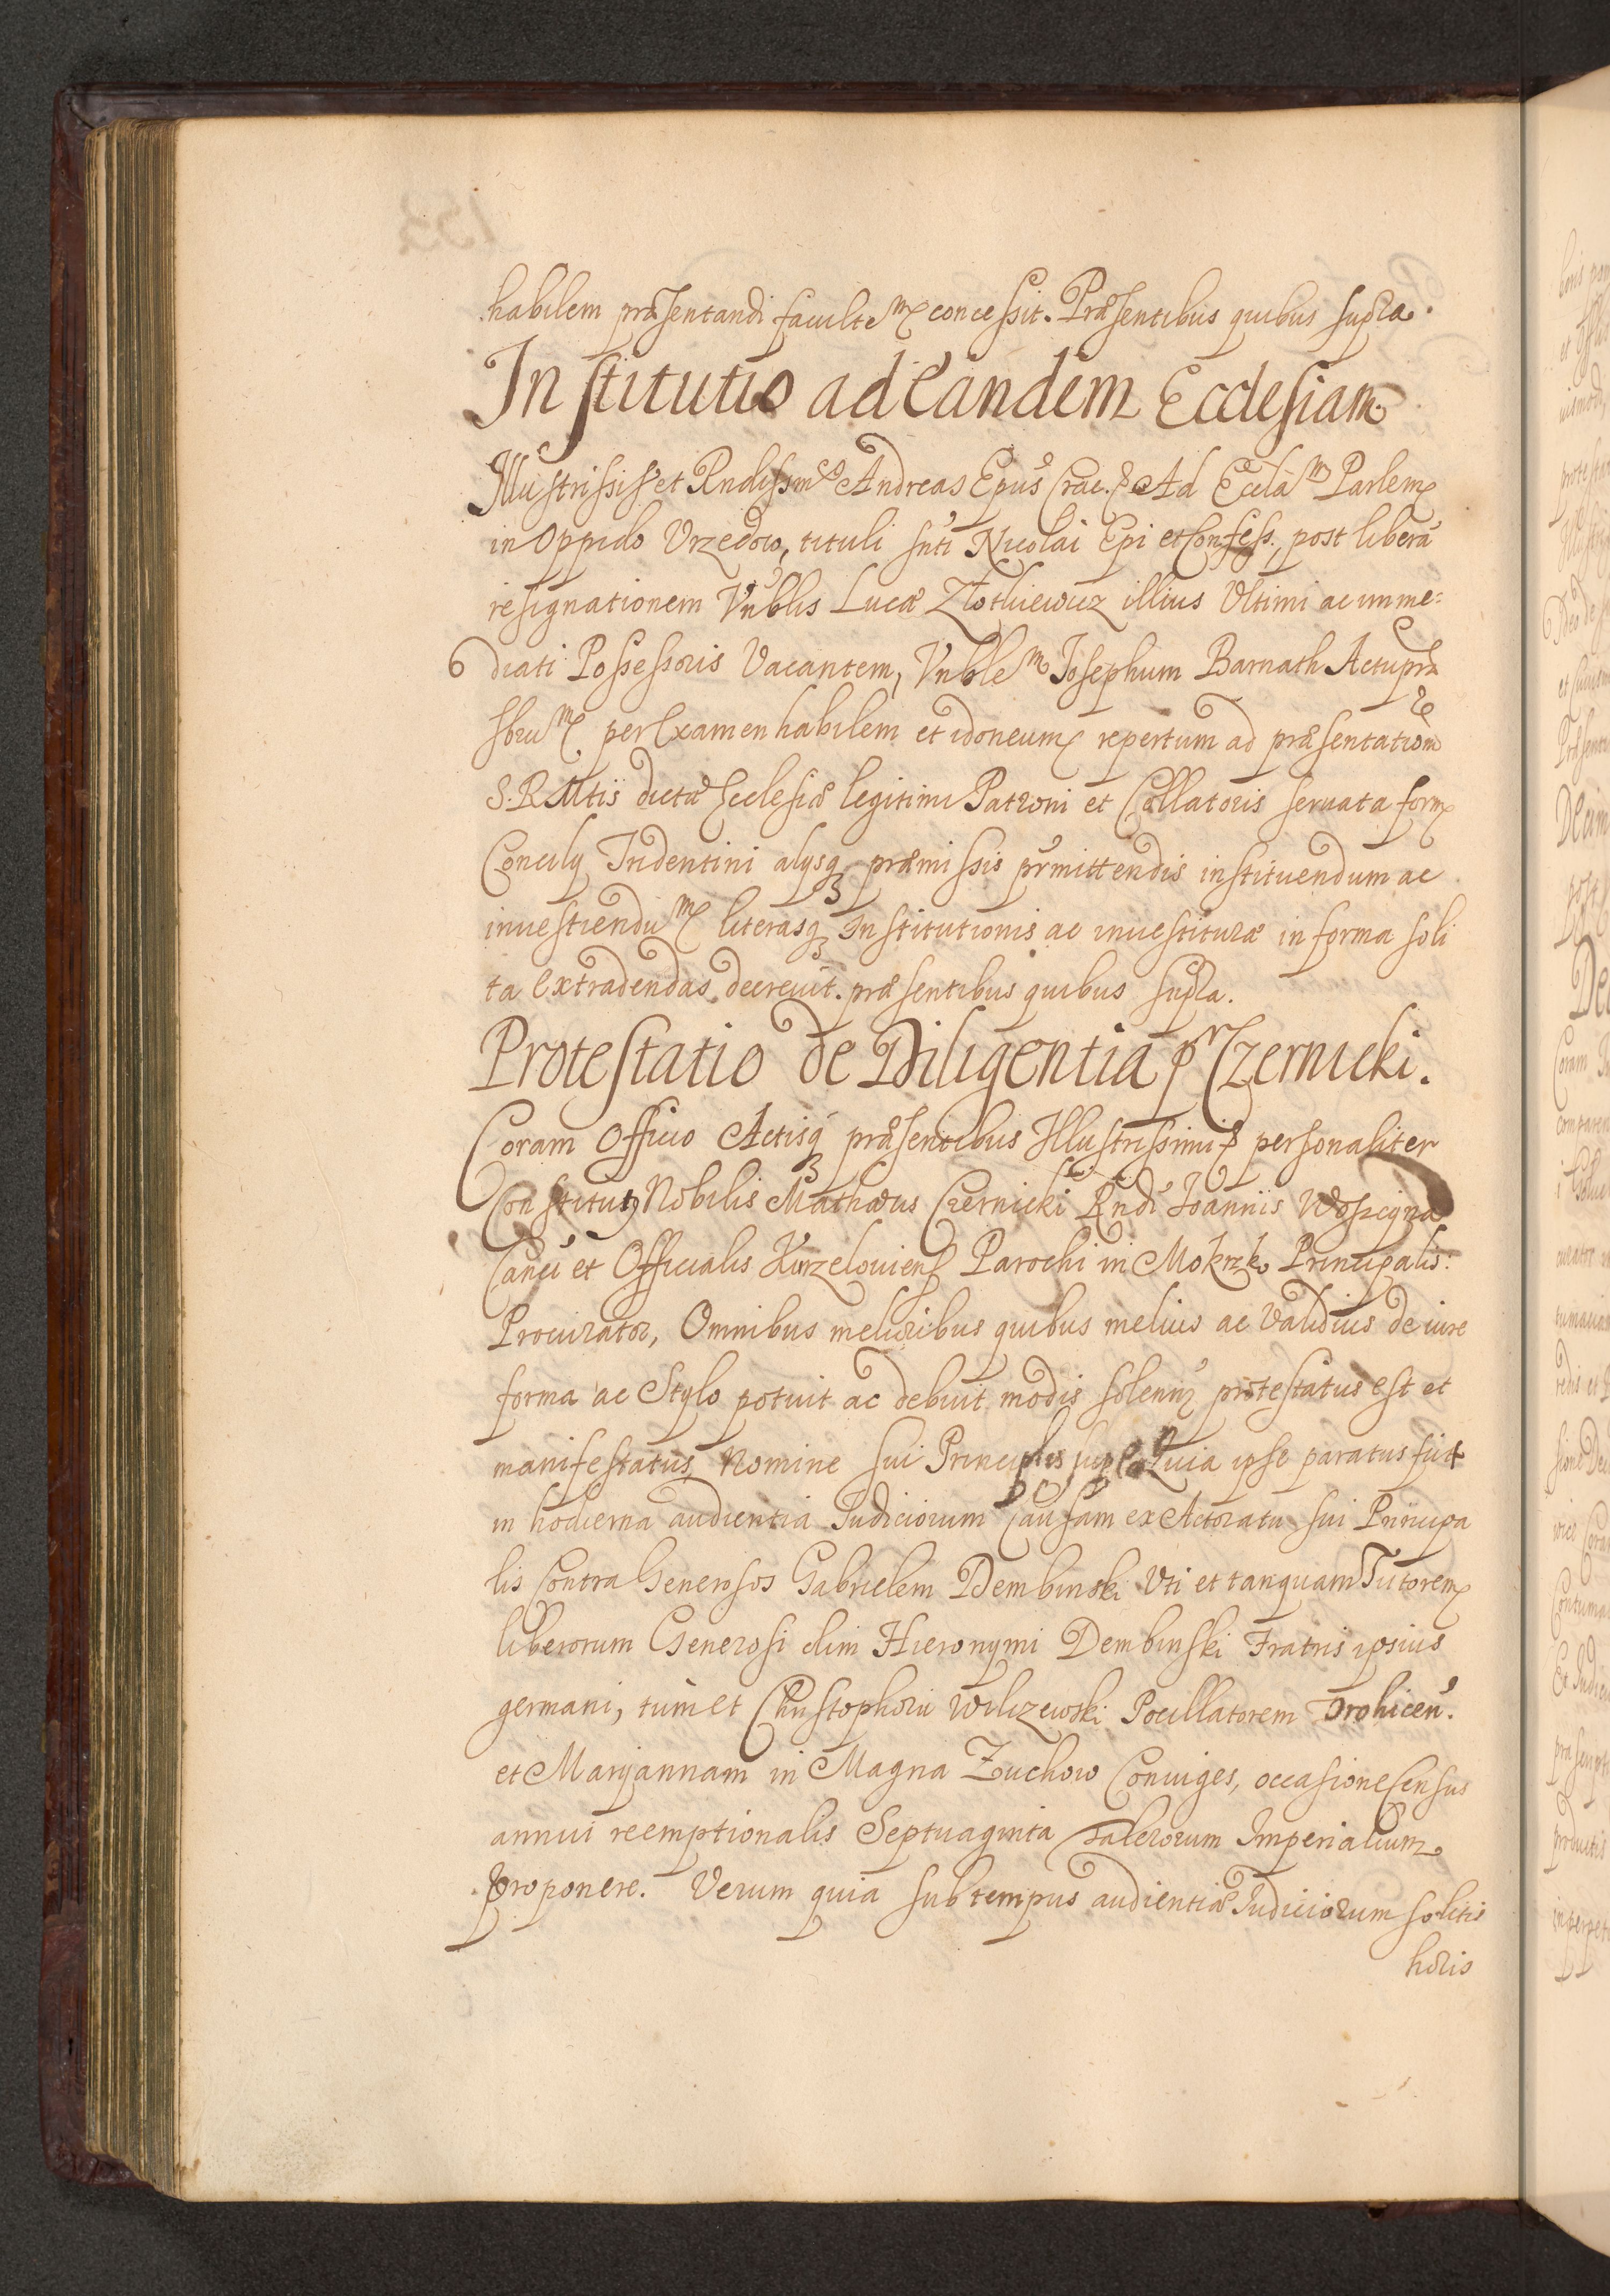 habilem præsentandi faculte͠m concessit. Præsentibus quibus supra.
Institutio ad Eandem Ecclesiam.
Illustrissis et Rndissmus Andreas Epus Crac. Ad Eccla͠m Parlem
in Oppido Vrzedow, tituli snti Nicolai Epi et Confess. post liberã
resignationem Vnblis Lucæ Złotkiewicz illius Vltimi ac imme:
diati Possessoris Vacantem, Vnble͠m Josephum Barnath Actu præ
sbru͠m per Examen habilem et idoneum repertum ad præsentatiõe
S. R. Mtis dictæ Ecclesiæ legitimi Patroni et Collatoris seruata form
Concily Tridentini alysq præmissis prmittendis instituendum ac
inuestiendu͠m literasq Institutionis ac inuestituræ in forma soli
ta Extradendas decreuit. præsentibus quibus supra.
Protestatio de Diligentia pr Czernicki.
Coram Officio Actisq præsentibus Illustrissimis personaliter
Constitut9 Nobilis Mathæus Czernicki Rndi Joannis
Canci et Officialis Kurzelouiens Parochi in Mokrzko Principalis
Procurator, Omnibus melioribus quibus melius ac Validius de iure
forma ac Stylo potuit ac debuit modis solenr protestatus est et
manifestatus Nomine sui Principlis Quia ipse paratus fuit
in hodierna audientia Judiciorum Causam ex Actoratu sui Principa
lis Contra Generosos Gabrielem Dembinski Vti et tanquam Tutorem
liberorum Generosi olim Hieronymi Dembinski Fratris ipsius
germani, tum et Christophoru Wilczewski Pocillatorem Drohicen.
et Maryannam in Magna Zuchow Coniuges, occasione Census
annui reemptionalis Septuaginta Talerorum Imperialium
proponere. Verum quia sub tempus audientiæ Judiciorum solitis
horis